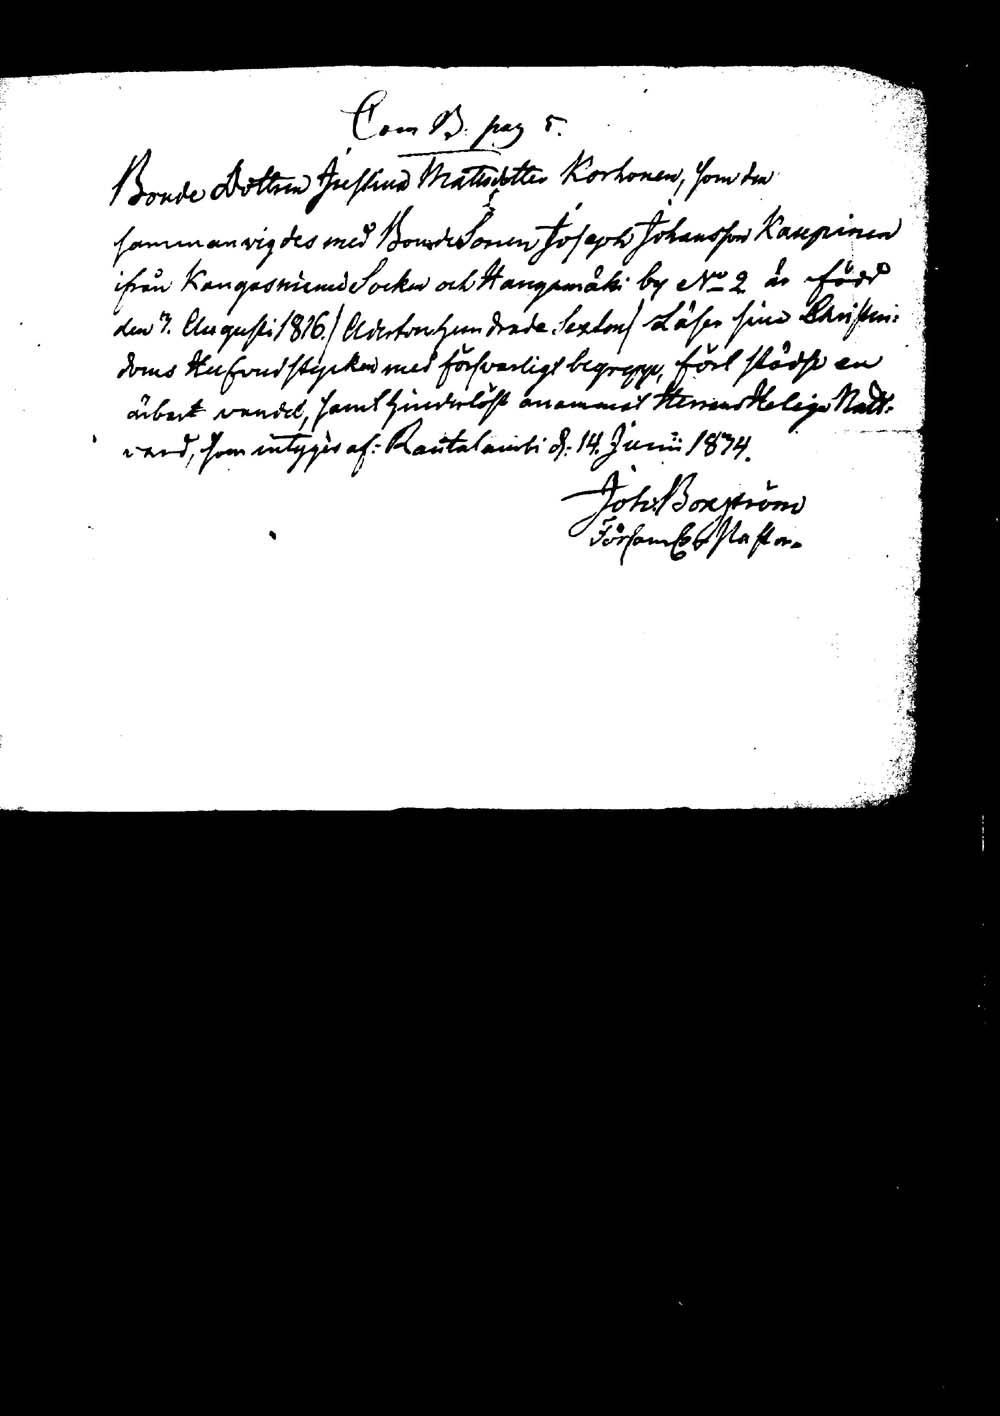 Com B. pag 5.
Bonde Dottren Justina Mattsdotter Korhonen, som den
sammanvigdes med Bonde Sonen Joseph Johansson Kaupinen
ifrån Kangasniemi Socken och Hangasmäki by No 2 är född
den 7. Augusti 1816 / Adertonhundrade Sexton / Läser sina Christen-
doms Hufvudstycken med försvarligt begrepp, fört städse en
ärbart vandel, samt hinderlöst anammat Herrans Heliga Natt-
vard, som intygas af: Rautalambi d: 14. Junii 1834.
Joh. Boxström
Församl. Pastor.